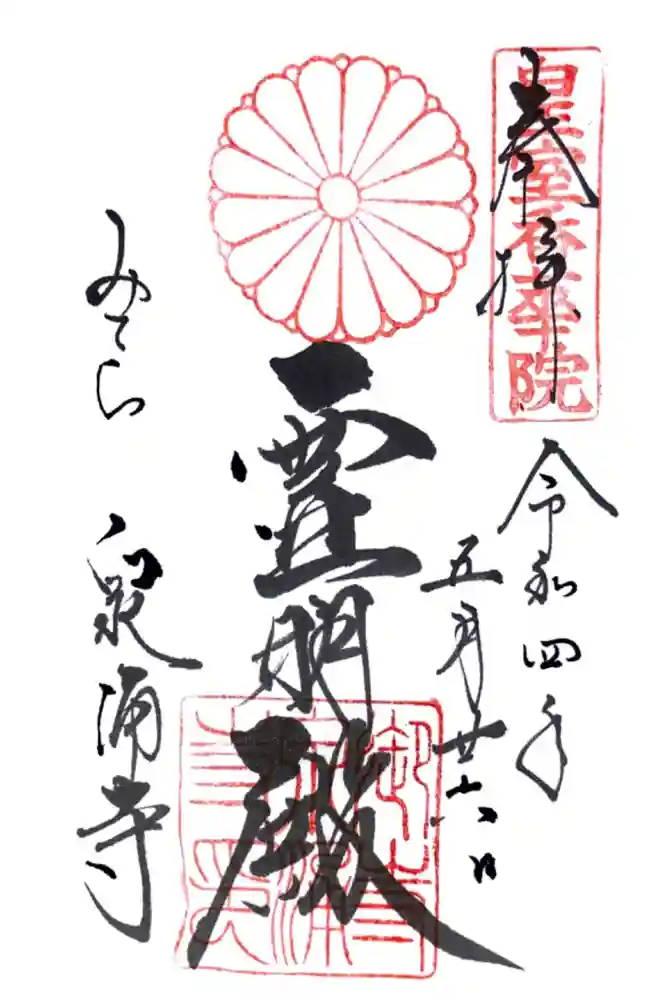 奉拝
皇室香華院
令和四年
五月廿六日
霊明殿
みてら
泉涌寺